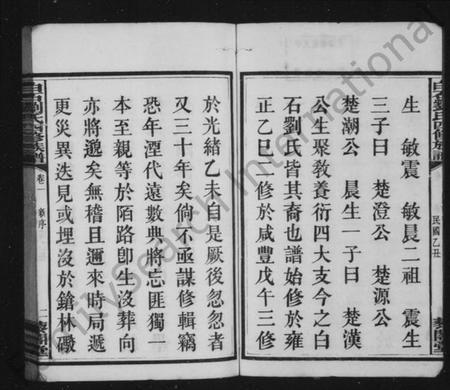 生 敏震 敏晨二祖 震生
三子曰 楚澄公 楚源公
楚潮公 晨生一子曰 楚漢
公生聚敬養衍四大支今之白
石劉氏皆其裔也譜始修於雍
正乙巳二修於咸豐戊午三修
於光緒乙未自是厥後忽忽者
又三十年矣倘不亟謀修輯竊
恐年湮代遠數典將忘匪獨一
本至親等於陌路卽生沒葬向
亦將邈矣無稽且邇來時局遞
更災異迭見或埋沒於鎗林礮
劉氏四修族譜
民國乙丑
劉氏四修族譜
卷
序
二
堂
CitySearch International